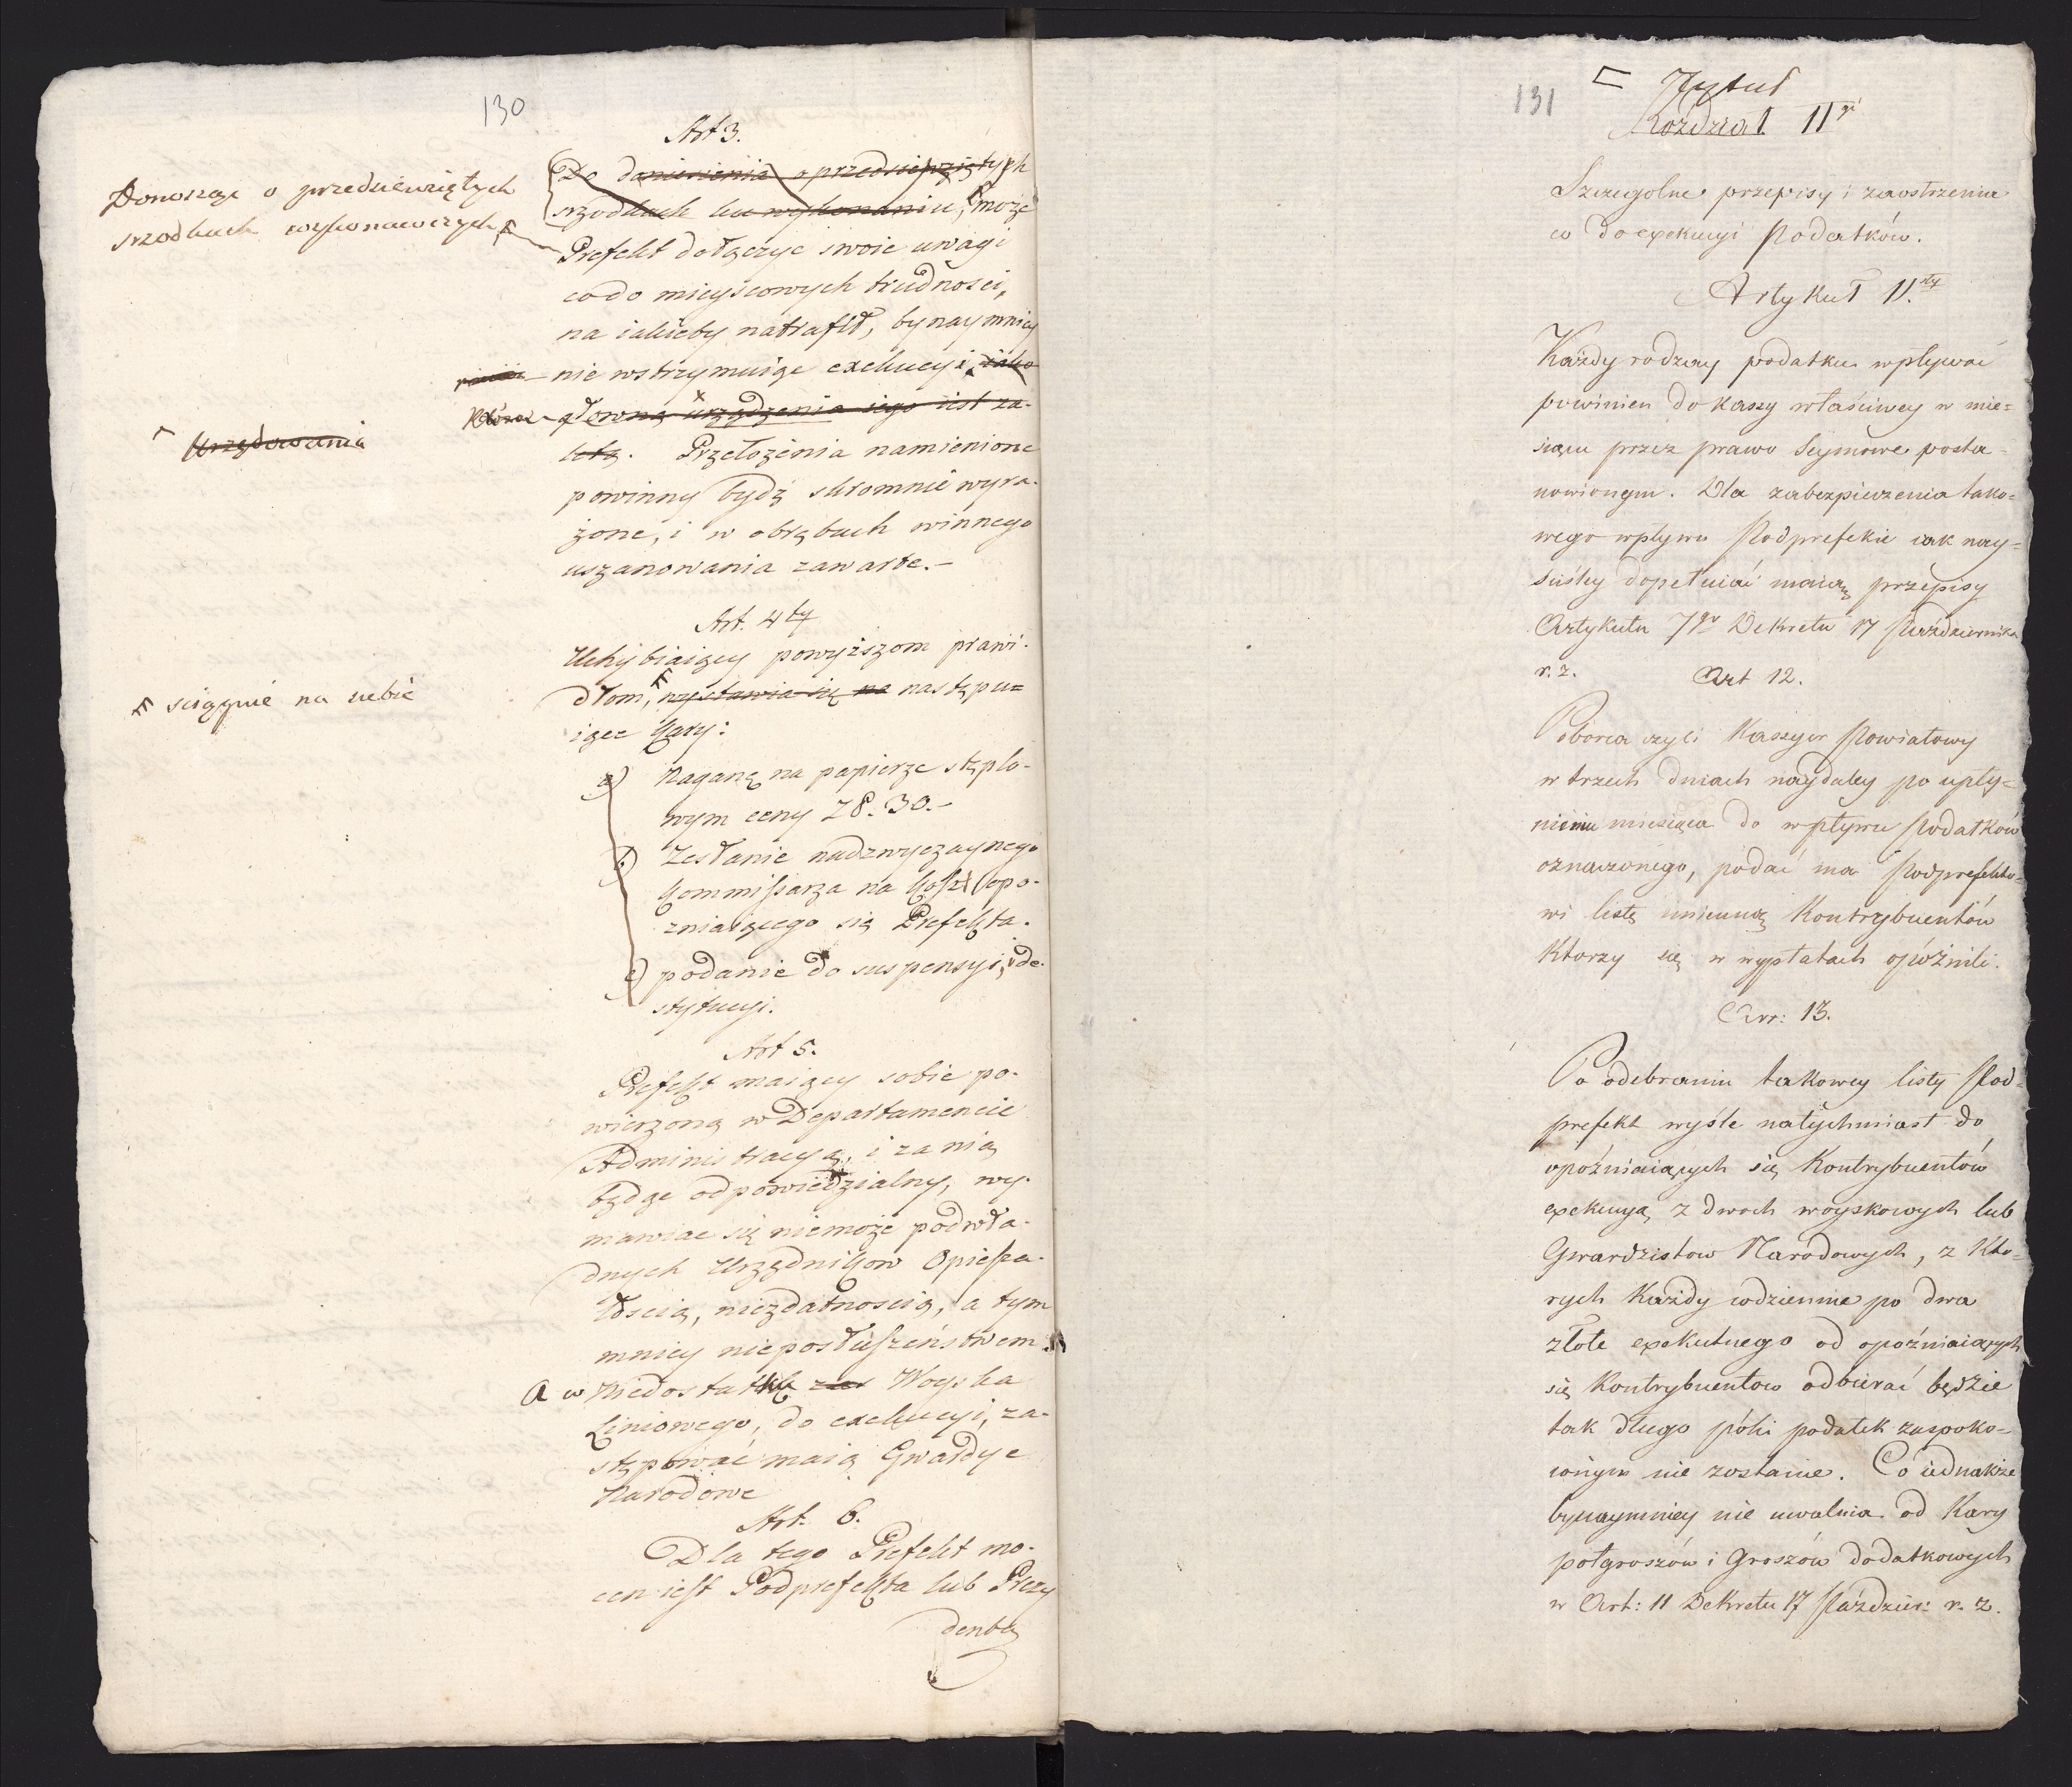 130
Art 3.
Do doniesienia o przedsiewziętych
srzodkach ku wykonaniu, może
Donosząc o przedsiewziętych
srzodkach wykonawczych
Prefekt dołączyc swoie uwagi
codo mieyscowych trudnosci,
na iakieby natrafił, bynaymniey
nie wstrzymuiąc exekucyi, iako
główną urządzenia iego iest za-
Która
Urzędowania
letą. Przełożenia namienione
powinny bydź skromnie wyra-
żone, i w obrębach winnego
uszanowania zawarte.-
Art. 4ty
Uchybiaiący powyższom prawi-
dłom, wystawia się na nastąpu=
ściągnie na siebie
iące kary:
a) Naganę na papierze stęplo-
wym ceny Zł. 30.-
b) Zesłanie nadzwyczaynego
Kommissarza na koszt opo-
zniaiącego się Prefekta.
c) podanie do suspensyi, de-
stytucyi.
Art 5.
Prefekt maiący sobie po-
wierzoną w Departamencie
Administracyą, i za nią
będąc odpowiedzialny, wy-
mawiac się niemoże podwła-
dnych Urzędnikow Opiesza-
łoscią, niezdatnoscią, a tym
mniey nieposłuszeństwem
a w Niedostatku Woyska
Liniowego, do exekucyi, za-
stępować maią Gwardye
Narodowe
Art. 6.
Dla tego Prefekt mo-
cen iest Podprefekta lub Prezy
denta
131
Tytuł
Rozdział IIgi
Szczegolne przepisy i zaostrzenia
co do exekucyi Podatków.
Artykuł 11.sty
Każdy rodzay podatku wpływać
powinien do kassy właściwey w mie=
siącu przez prawo Seymowe posta=
nowionym. Dla zabezpieczenia tako=
wego wpływu Podprefekci iak nay=
ściśley dopełniać maią przepisy
Artykułu 7go Dekretu 17 Października
r. z.
Art 12.
Poborca czyli Kassyer Powiatowy
w trzech dniach naydaley po upły=
nieniu miesiąca do wpływu Podatków
oznaczonego, podać ma Podprefekto=
wi listę imienną Kontrybuentów
Ktorzy się w wypłatach opóźnili.
Art: 13.
Po odebraniu takowey listy Pod=
prefekt wyśle natychmiast do
opóźniaiących się Kontrybuentów
exekucyą, z dwoch woyskowych lub
Gwardzistow Narodowych, z Kto=
rych Każdy codziennie po dwa
złote exekutnego od opoźniaiących
się Kontrybuentow odbierać będzie
tak długo póki podatek zaspoko=
ionym nie zostanie. Co iednakże
bynaymniey nie uwalnia od Kary
półgroszów i Groszów dodatkowych
w Art: 11 Dekretu 17 Paździer: r. z.